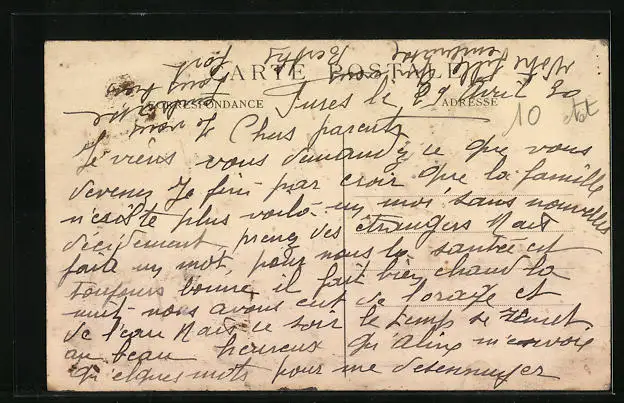 CARTE POSTALE
CORRESPONDANCE
ADRESSE
le 29 Avril 30
10
Chers parents
Je viens vous demandez ce que vous
devenez Je fini par croir que la famille
n'esciste plus voilà un moi sans nouvelles
décidement, prenez des étrangers Mais
faite un mot, pour nous la santée est
toujours bonne il fait bien chaud la
nuit nous avons eut de l'orage et
de l'eau Mais ce soir le temps se remet
au beau heureux qu'Aline m'envoie
qu'elques mots pour me desennuyer
Je vous
fort
Votre fille
Berthe